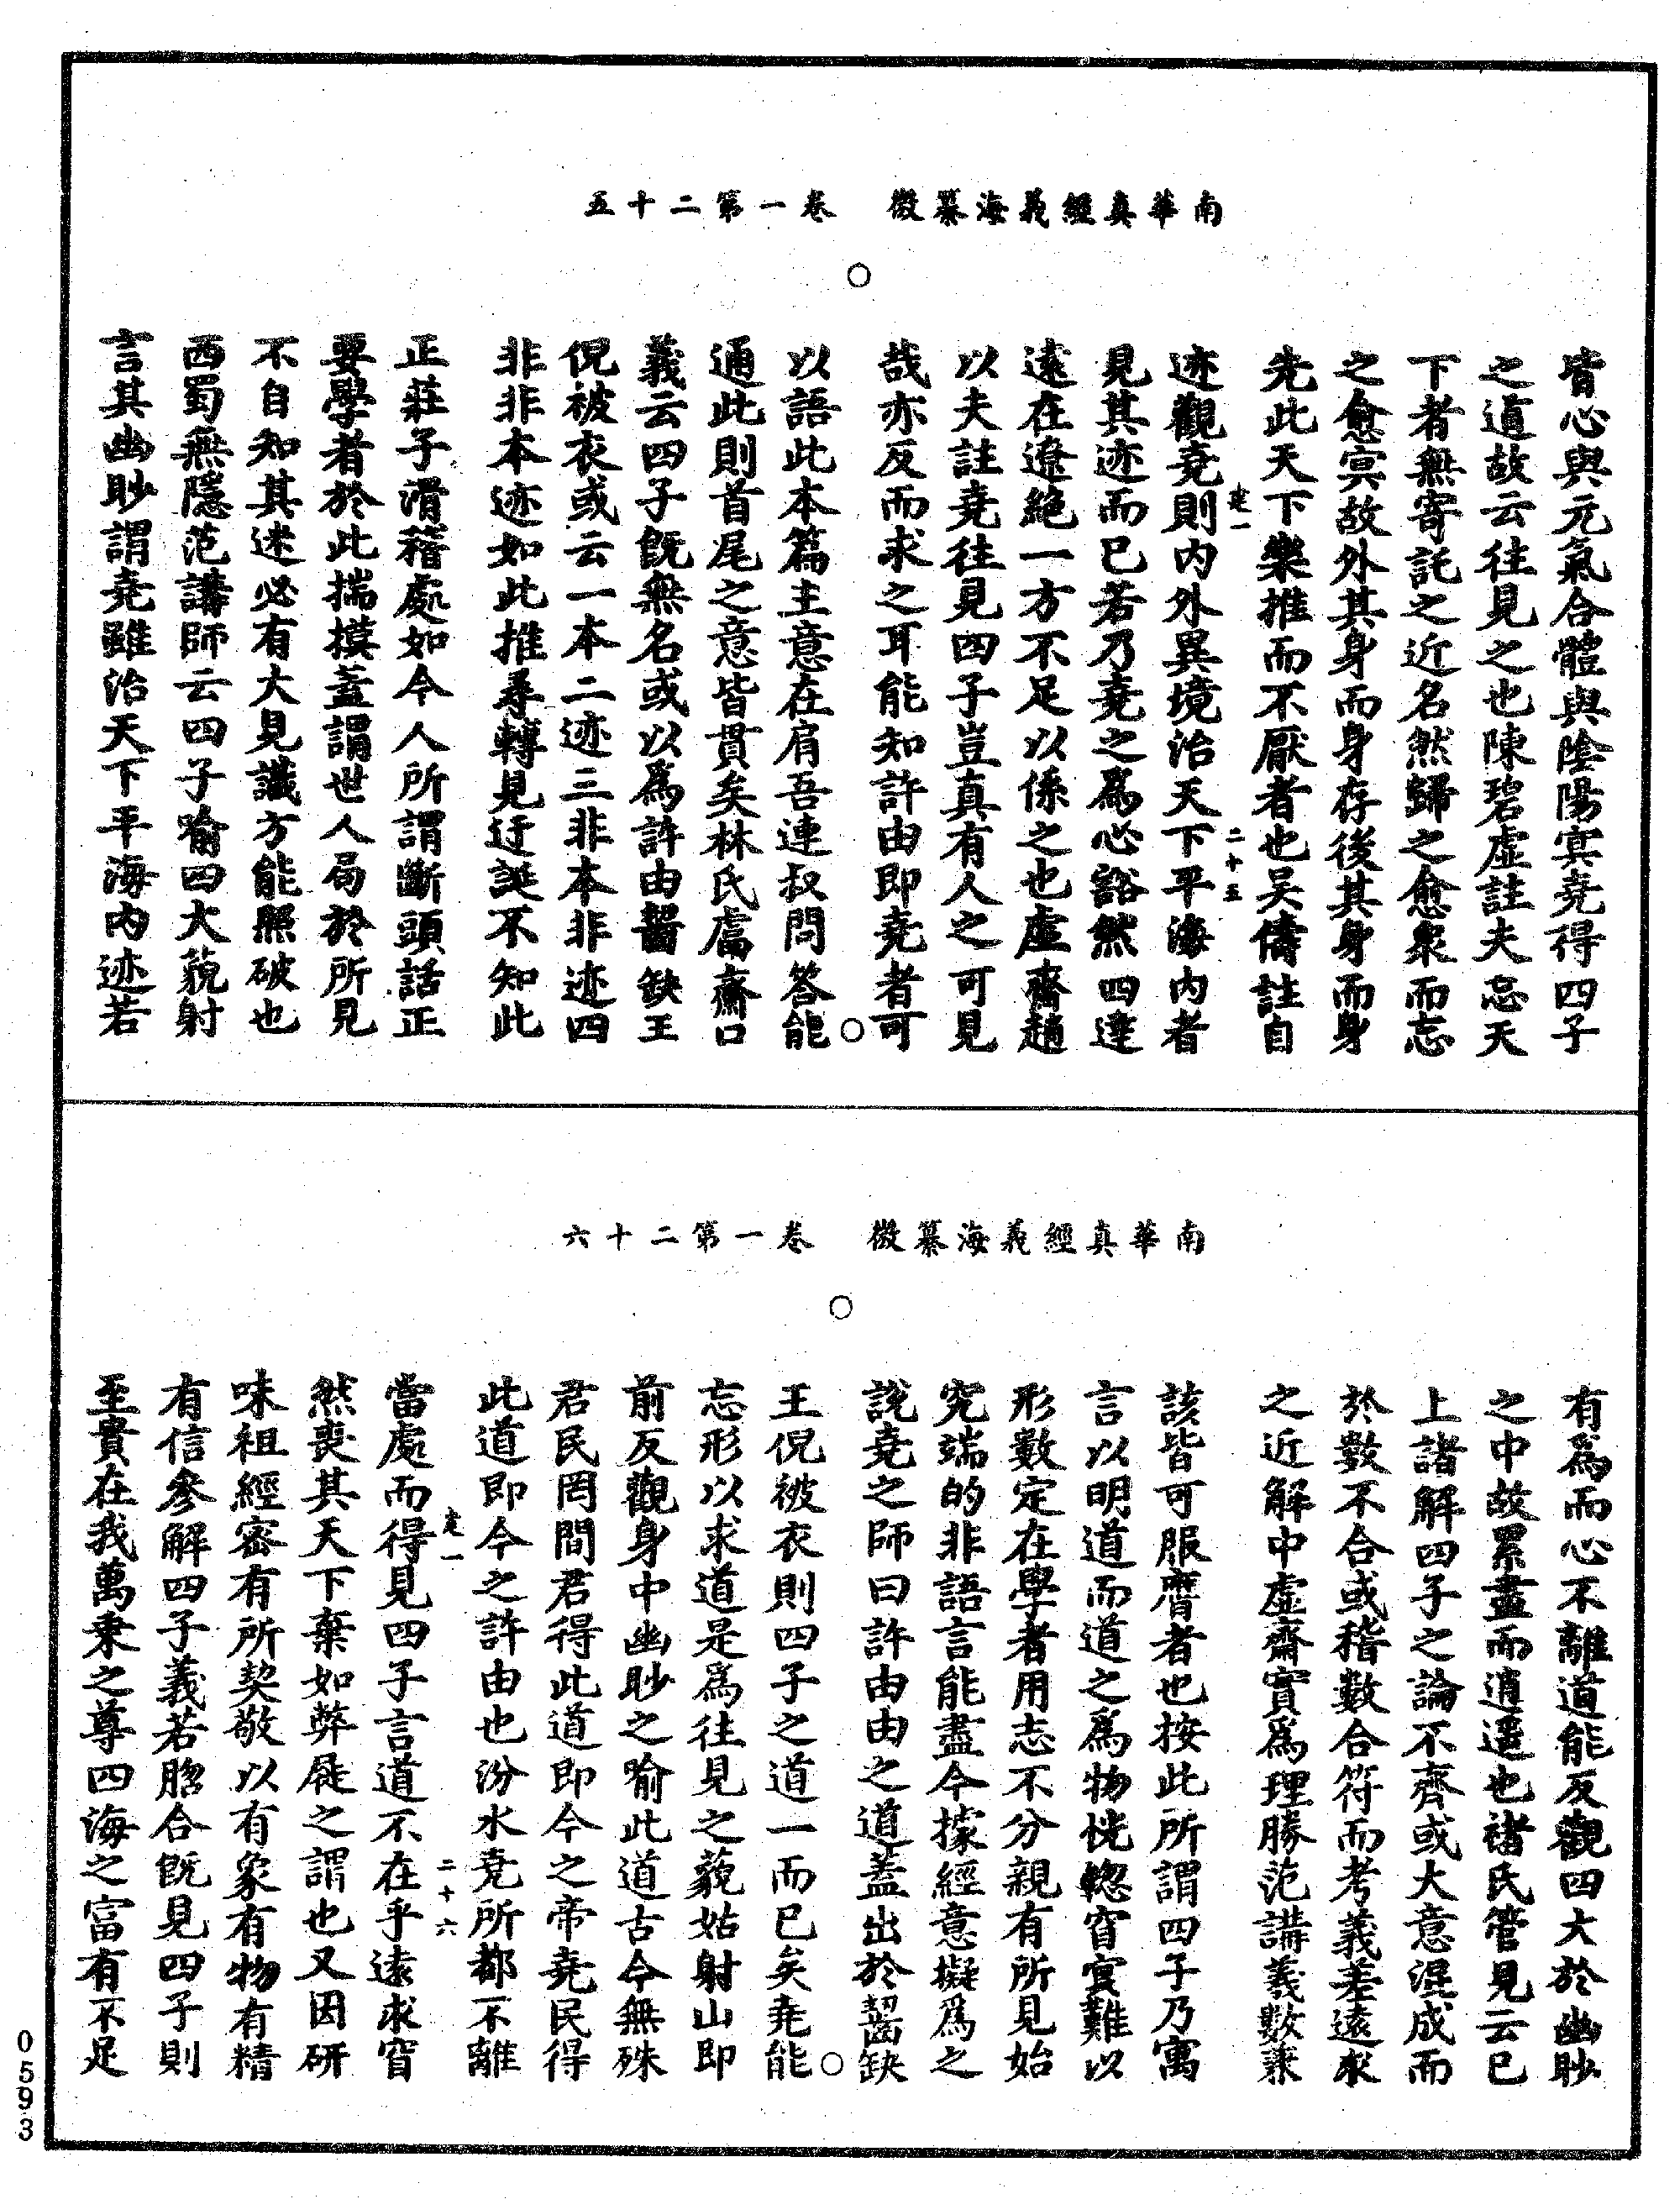 南華真經義海纂微　卷一第二十五
皆心與元氣合體與陰陽冥堯得四子
之道故云往見之也陳碧虛註夫忘天
下者無寄託之近名然歸之愈衆而忘
之愈冥故外其身而身存後其身而身
先此天下樂推而不厭者也吳儔註自
迹觀堯則內外異境治天下平海內者
見其迹而已若乃堯之爲心豁然四達
遠在遼絕一方不足以係之也虛齋趙
以夫註堯往見四子豈真有人之可見
哉亦反而求之耳能知許由即堯者可
以語此本篇主意在肩吾連叔問答能
通此則首尾之意皆貫矣林氏鬳齋口
義云四子旣無名或以爲許由齧缺王
倪被衣或云一本二迹三非本非迹四
非非本迹如此推尋轉見迂誕不知此
正莊子滑稽處如今人所謂斷頭話正
要學者於此揣摸蓋謂世人局於所見
不自知其迷必有大見識方能照破也
西蜀無隱范講師云四子喻四大藐射
言其幽眇謂堯雖治天下平海內迹若
南華真經義海纂微　卷一第二十六
有爲而心不離道能反觀四大於幽眇
之中故累盡而逍遥也褚氏管見云已
上諸解四子之論不齊或大意混成而
於數不合或稽數合符而考義差遠求
之近解中虛齋實爲理勝范講義數兼
該皆可服膺者也按此所謂四子乃寓
言以明道而道之爲物恍惚窅冥難以
形數定在學者用志不分親有所見始
究端的非語言能盡今據經意擬爲之
說堯之師曰許由由之道蓋出於齧缺
王倪被衣則四子之道一而已矣堯能
忘形以求道是爲往見之藐姑射山即
前反觀身中幽眇之喻此道古今無殊
君民罔間君得此道即今之帝堯民得
此道即今之許由也汾水堯所都不離
當處而得見四子言道不在乎遠求窅
然喪其天下棄如弊屣之謂也又因研
味祖經密有所契敬以有象有物有精
有信參解四子義若脗合旣見四子則
至貴在我萬乘之尊四海之富有不足
定一
二十五
定一
二十六
0593